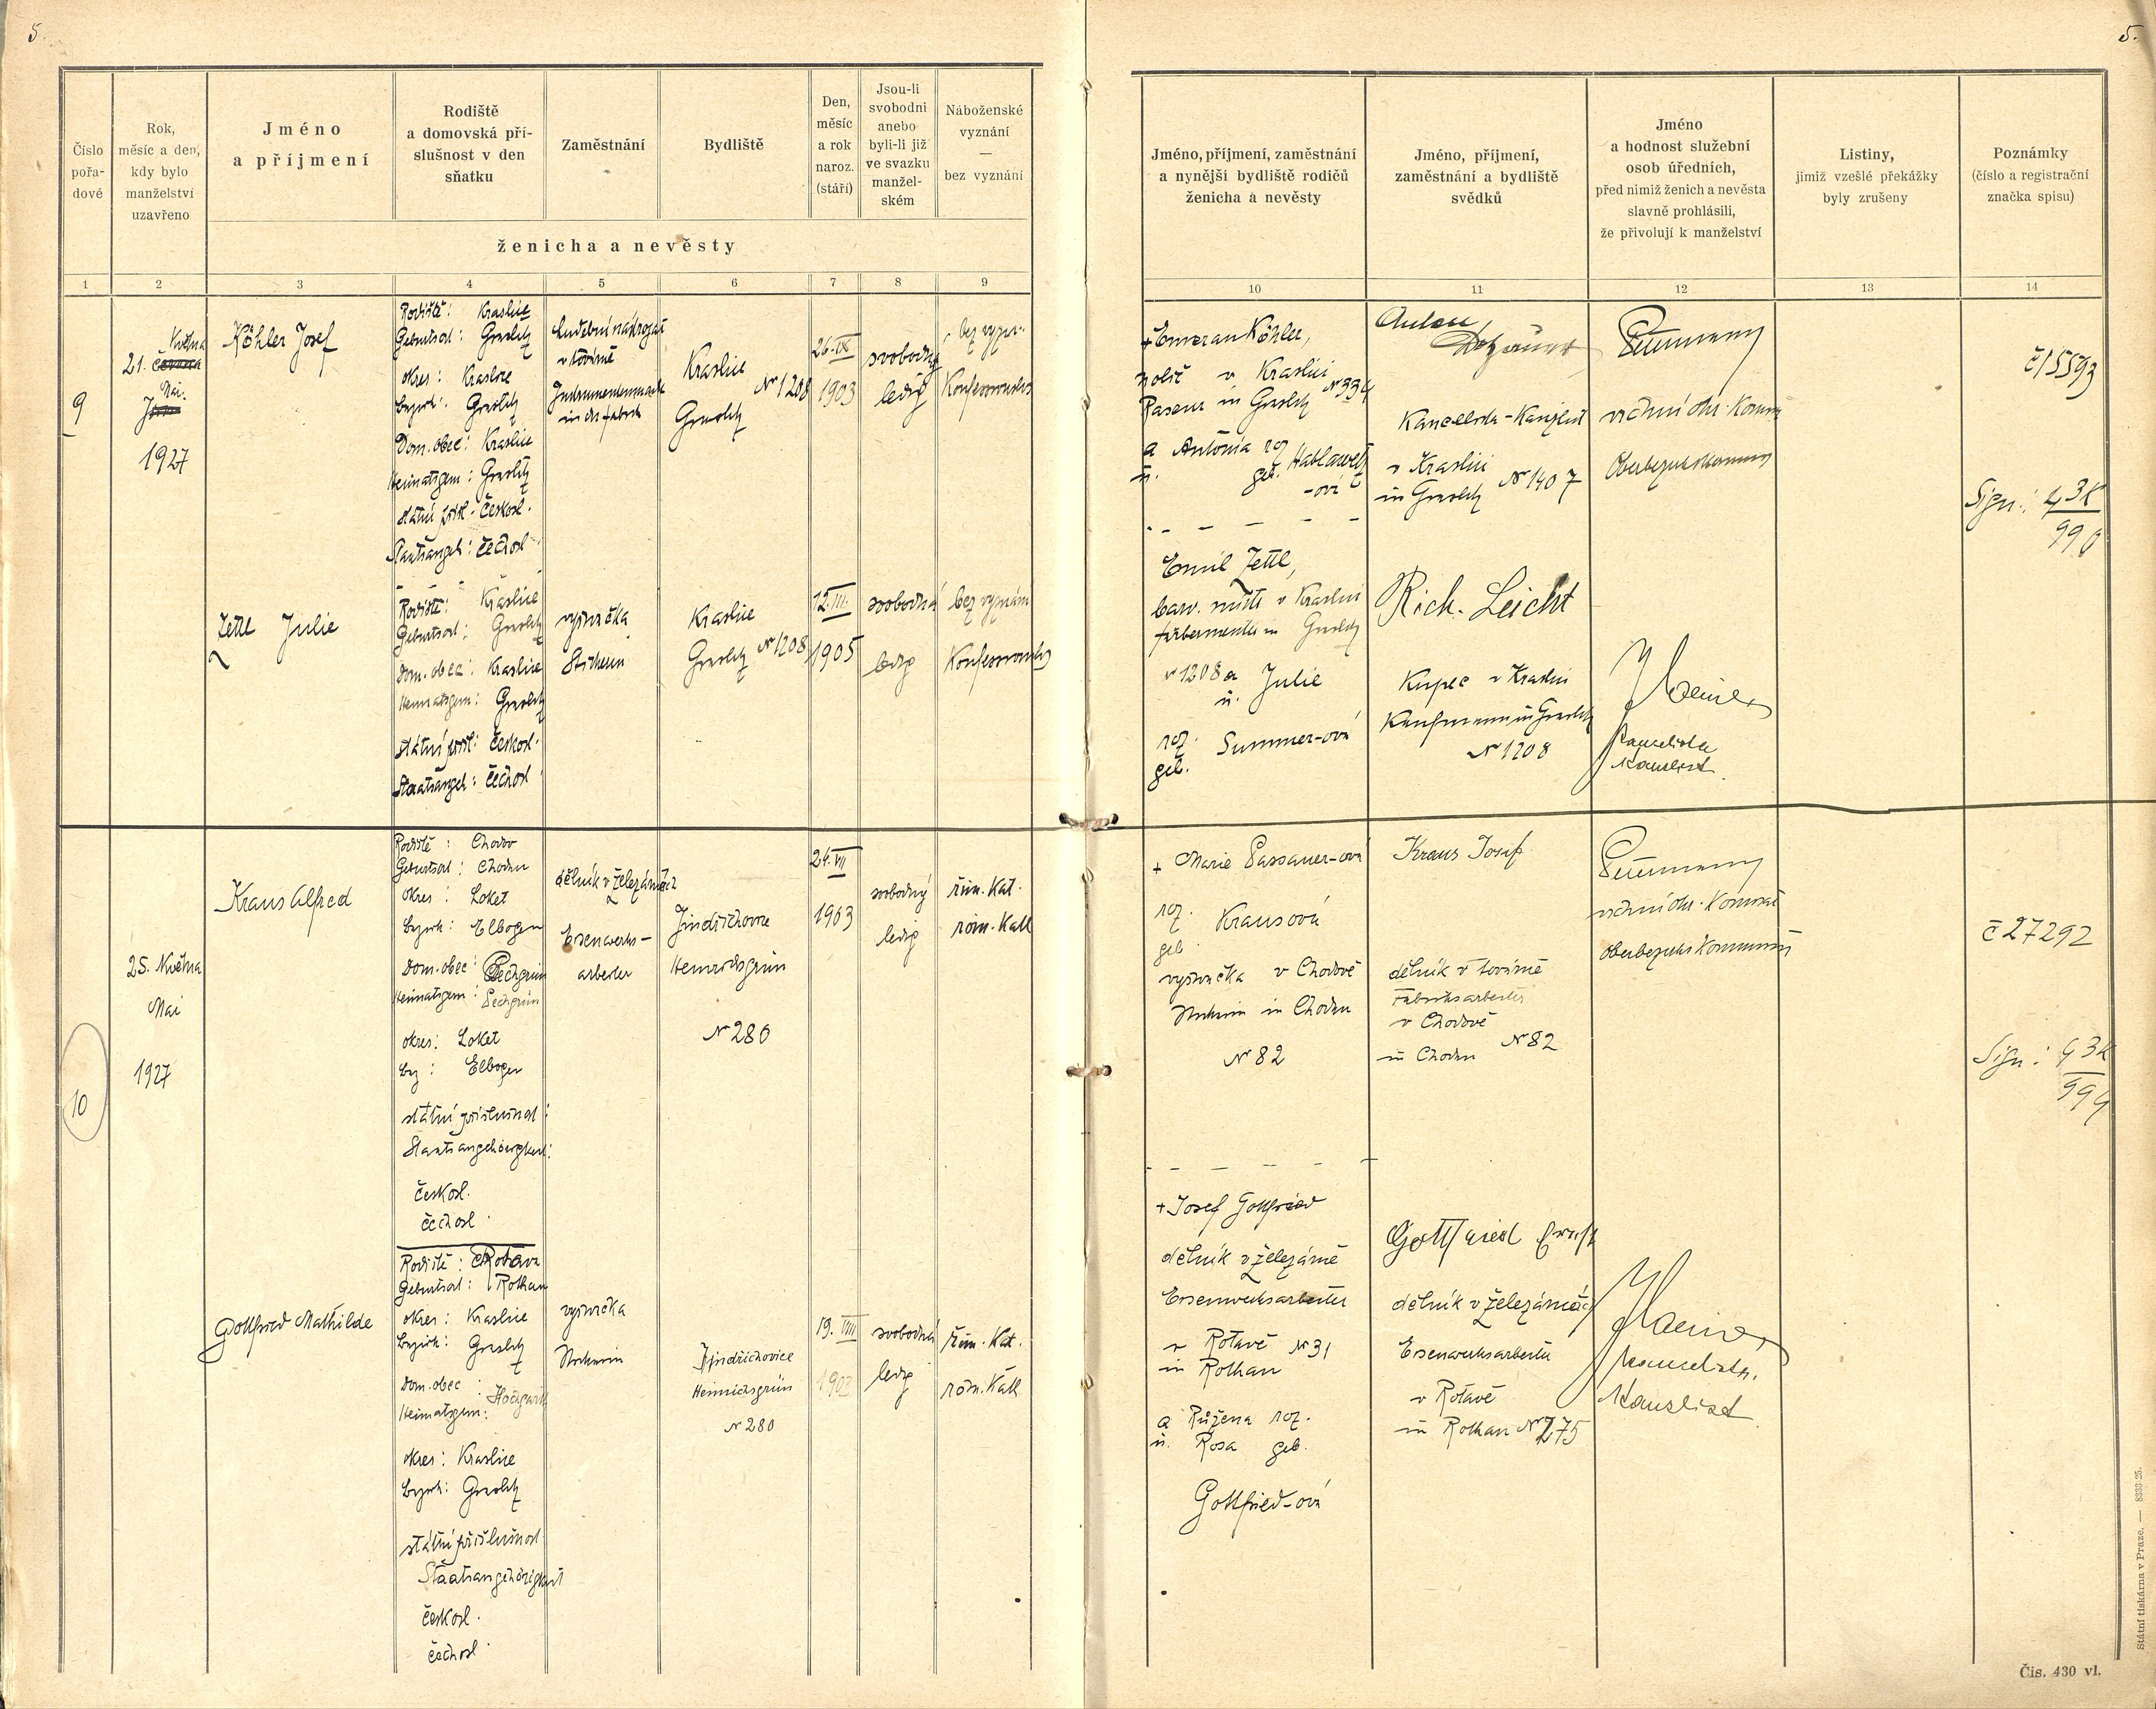 5.
5.
Číslo
pořa-
dové
Rok,
měsíc a den,
kdy bylo
manželství
uzavřeno
Jméno
a příjmení
Rodiště
a domovská pří-
slušnost v den
sňatku
Zaměstnání
Bydliště
Den,
měsíc
a rok
naroz.
(stáří)
Jsou-li
svobodni
anebo
byli-li již
ve svazku
manžel-
ském
Náboženské
vyznání
—
bez vyznání
ženicha a nevěsty
Jméno, příjmení, zaměstnání
a nynější bydliště rodičů
ženicha a nevěsty
Jméno, příjmení,
zaměstnání a bydliště
svědků
Jméno
a hodnost služební
osob úředních,
před nimiž ženich a nevěsta
slavně prohlásili,
že přivolují k manželství
Listiny,
jimiž vzešlé překážky
byly zrušeny
Poznámky
(číslo a registrační
značka spisu)
1 2 3 4 5 6 7 8 9 10 11 12 13 14
9
Května
21. června
Mai.
1927
Köhler Josef
Rodiště: Kraslice
Geburtsort: Graslitz
okres: Kraslice
Bezirk: Graslitz
Dom. obec: Kraslice
Heimatsgem: Graslitz
státní přísl.: českosl.
Staatsangeh: čechosl.
v továrně
in der Fabrik
Kraslice
Graslitz
№ 1208
1903
svobodný
ledig
bez vyzn.
Konfessionslos
+ Emeran Köhler,
holič v Kraslici
Raseur in Graslitz № 334
a Antonia roz.
u. geb. Hablawetz
-ová
Anton
Kancelista - Kanzlist
v Kraslici
in Graslitz № 1407
vrchní okr. Komisař
Oberbezirkskommissär
č 15593
Sign: 43K
990
Zettl Julie
Rodiště: Kraslice
Geburtsort: Graslitz
Dom. obec: Kraslice
Heimatsgem: Graslitz
státní přísl: českosl.
Staatsangeh: čechosl.
vyšívačka
Stickerin
Kraslice
Graslitz № 1208
12. III.
1905
svobodná
ledig
bez vyznání
Konfessionslos
Emil Zettl,
barv. mistr v Kraslici
Färbermeister in Graslitz
№ 1208 a
u. Julie
roz.
geb. Summer-ová
Rich. Leicht
Kupec v Kraslici
Kaufmann in Graslitz
№ 1208
Kancelista
Kanzlist.
10
25. Května
Mai
1927
Kraus Alfred
Rodiště: Chodov
Geburtsort: Chodau
okres: Loket
Bezirk: Elbogen
Dom. obec: Pechgrün
Heimatsgem: Pechgrün
okres: Loket
Bez: Elbogen
státní příslušnost:
Staatsangehörigkeit:
českosl.
čechosl.
dělník v železárnách
Eisenwerks-
arbeiter
Jindřichovice
Heinrichsgrün
№ 280
24. VII
1903
svobodný
ledig
řím. Kat.
röm. Kath
+ Marie Passauer-ová
roz.
geb. Krausová
vyšívačka v Chodově
Stickerin in Chodau
№ 82
Kraus Josef
dělník v továrně
Fabriksarbeiter
v Chodově
in Chodau № 82
vrchní okr. Komisař
Oberbezirkskommissär
č 27292
Sign: 43K
994
Gottfried Mathilde
Rodiště: Rotava
Geburtsort: Rothau
okres: Kraslice
Bezirk: Graslitz
Dom. obec:
Heimatsgem:
okres: Kraslice
Bezirk: Graslitz
státní příslušnost
Staatsangehörigkeit
českosl.
čechosl.
vyšívačka
Stickerin
Jindřichovice
Heinrichsgrün
№ 280
19. VIII
svobodná
ledig
řím. Kat.
röm. Kath
+ Josef Gottfried
dělník v železárně
Eisenwerksarbeiter
v Rotavě № 31
in Rothau
a Růžena roz.
u. Rosa geb.
Gottfried-ová
Gottfried Ernst
dělník v železárnách
Eisenwerksarbeiter
v Rotavě
in Rothau № 275
Kancelista.
Kanzlist
Státní tiskárna v Praze. — 8333 25.
Čís. 430 vl.